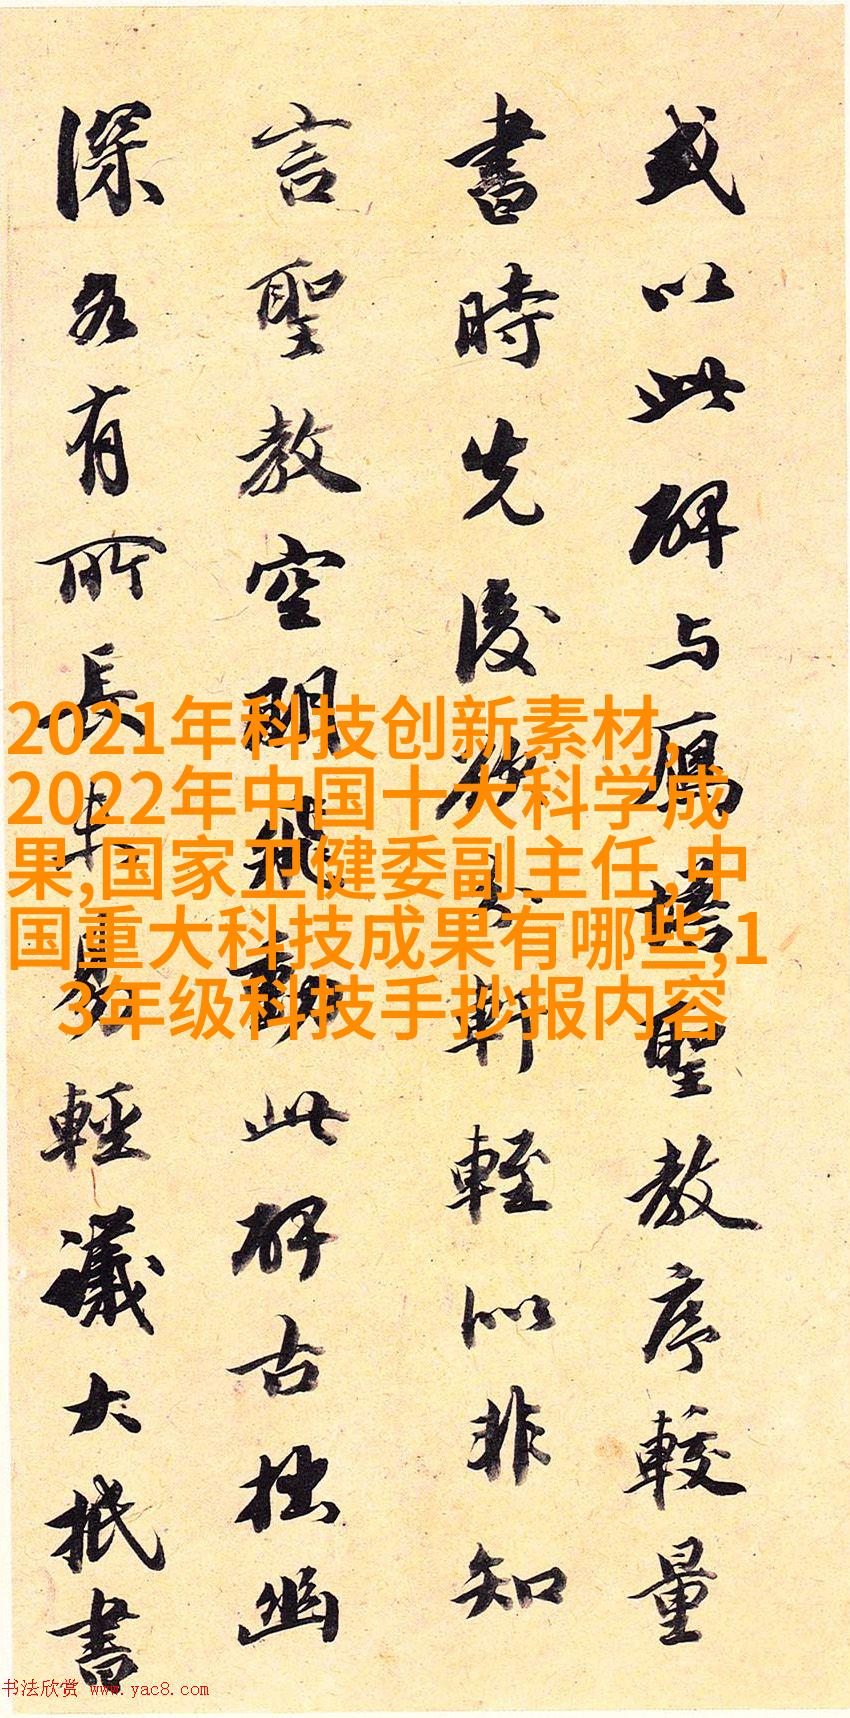 或以此碑与鴈塔聖教序較量
書時先後欲軒輊以非知
言聖教空明飛動此碑古拙幽
深各有所長未易輕議大抵書
2021年科技创新素材,
2022年中国十大科学成
果,国家卫健委副主任,中
国重大科技成果有哪些,1
3年级科技手抄报内容
书法欣赏 www.yac8.com